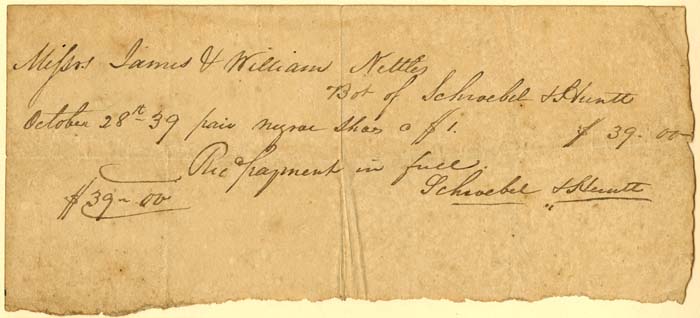 Messrs. James & William Nettles
Bot of Schroebel & Huntt
October 28th 39 pair negroe shoes @ $1. $ 39.00
Recd payment in full.
$39.00 Schroebel & Huntt